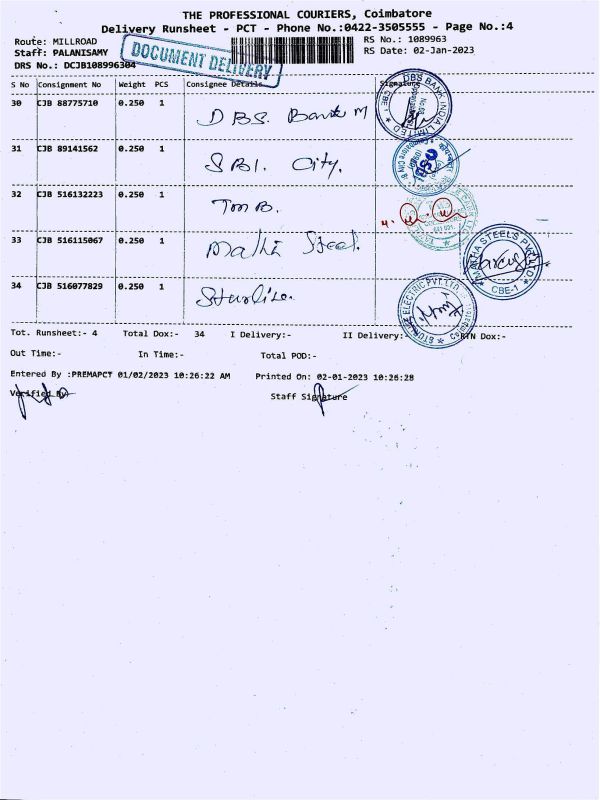 THE PROFESSIONAL COURIERS, Coimbatore
Delivery Runsheet - PCT - Phone No.:0422-3505555 - Page No.:4
Route: MILLROAD RS No.: 1089963
Staff: PALANISAMY RS Date: 02-Jan-2023
DRS No.: DCJB108996304
DOCUMENT DELIVERY
S No Consignment No Weight PCS Consignee Details Signature
30 CJB 88775710 0.250 1 DBS. Bank M
DBS BANK INDIA LIMITED CBE
31 CJB 89141562 0.250 1 SBI. City.
32 CJB 516132223 0.250 1 TMB.
33 CJB 516115067 0.250 1 Matha Steel.
MATHA STEELS PVT LTD CBE-1
34 CJB 516077829 0.250 1 Sturlite.
STURLITE ELECTRIC PVT. LTD
Tot. Runsheet:- 4 Total Dox:- 34 I Delivery:- II Delivery:- RTN Dox:-
Out Time:- In Time:- Total POD:-
Entered By :PREMAPCT 01/02/2023 10:26:22 AM Printed On: 02-01-2023 10:26:28
Verified By Staff Signature